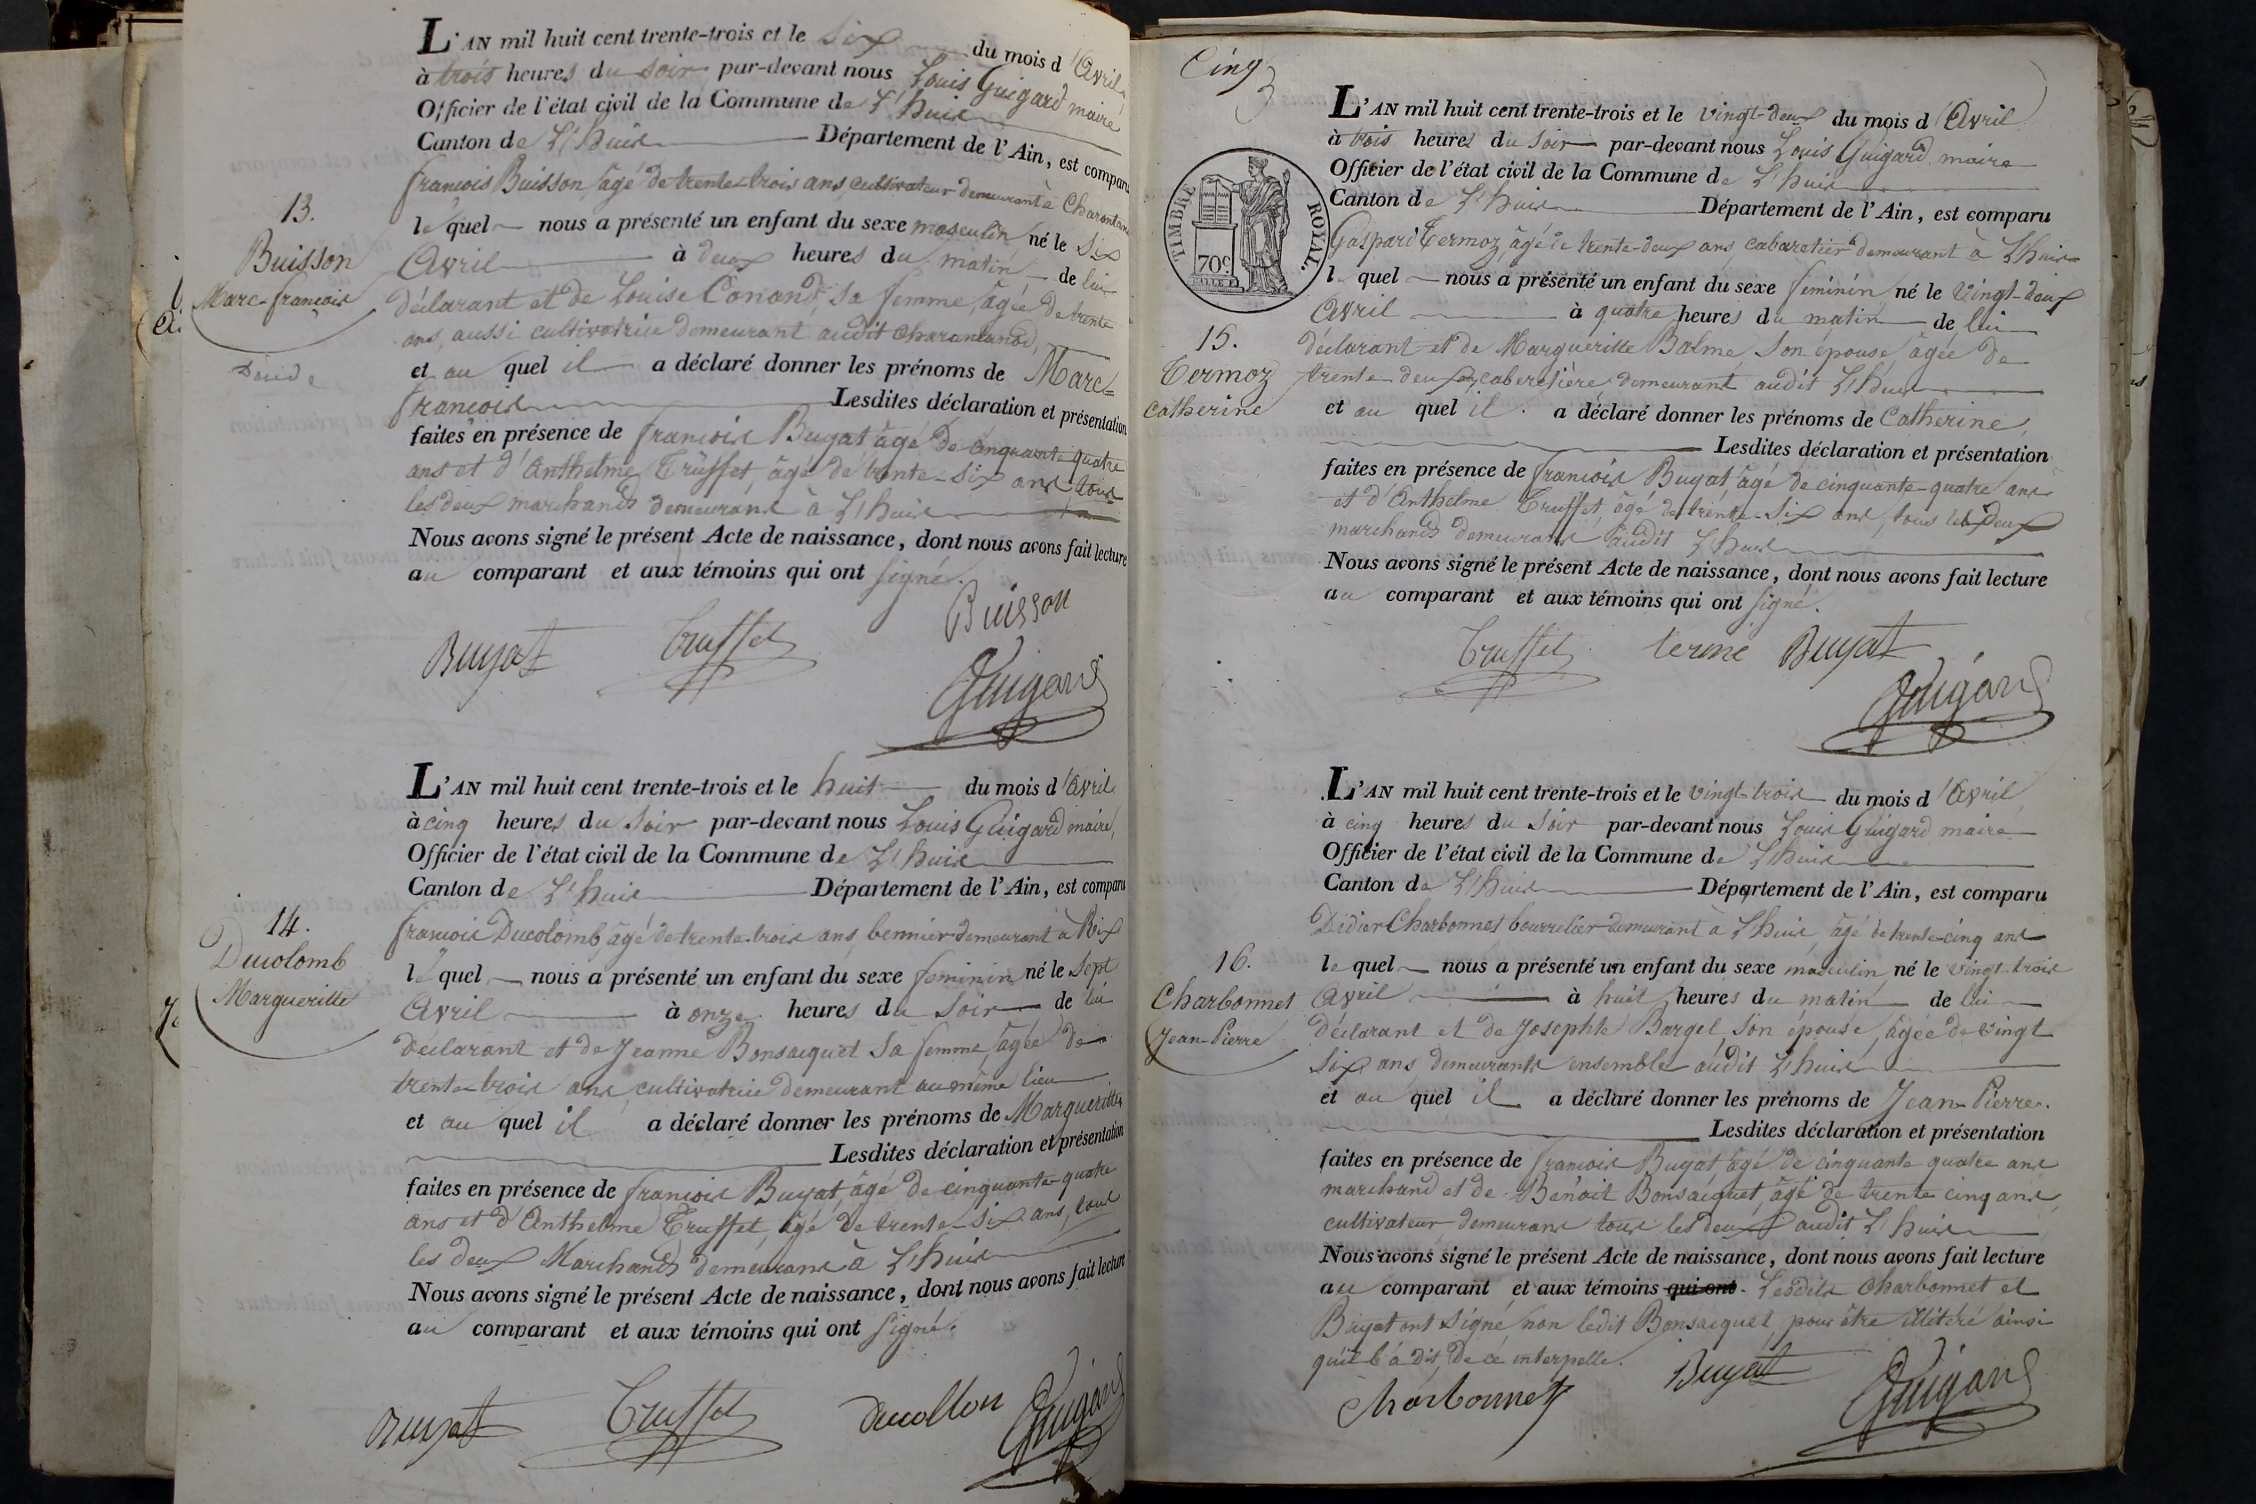 L'AN mil huit cent trente-trois et le six du mois d'Avril
à trois heures du soir par-devant nous Louis Guigard maire
Officier de l'état civil de la Commune de L'huis
Canton de L'huis Département de l'Ain, est comparu
françois Buisson, âgé de trente-trois ans, cultivateur demeurant à
13.
Buisson
Marc-françois
le quel nous a présenté un enfant du sexe masculin né le six
Avril à deux heures du matin de lui
déclarant et de Louise Conand, sa femme, âgée de trente
ans, aussi cultivatrice demeurant audit
et au quel il a déclaré donner les prénoms de Marc-
françois Lesdites déclaration et présentation
faites en présence de françois Buyat âgé de cinquante-quatre
ans et d'Anthelme Truffet, âgé de trente-six ans tous
les deux marchands demeurans à L'huis
Nous avons signé le présent Acte de naissance, dont nous avons fait lecture
au comparant et aux témoins qui ont signé.
Buisson
Buyat Truffet
Guigard
L'AN mil huit cent trente-trois et le huit du mois d'Avril
à cinq heures du soir par-devant nous Louis Guigard maire,
Officier de l'état civil de la Commune de L'huis
Canton de L'huis Département de l'Ain, est comparu
14.
Ducolomb
Margueritte
françois Ducolomb, âgé de trente-trois ans, demeurant à Rix
le quel nous a présenté un enfant du sexe feminin né le sept
Avril à onze heures du soir de lui
déclarant et de Jeanne Bonsacquet sa femme, âgée de
trente-trois ans, cultivatrice demeurant au même lieu
et au quel il a déclaré donner les prénoms de Margueritte
Lesdites déclaration et présentation
faites en présence de françois Buyat, âgé de cinquante-quatre
ans et d'Anthelme Truffet, âgé de trente-six ans, tous
les deux Marchands demeurans à L'huis
Nous avons signé le présent Acte de naissance, dont nous avons fait lecture
au comparant et aux témoins qui ont signé.
Buyat Truffet ducollon Guigard
Cinq
L'AN mil huit cent trente-trois et le vingt-deux du mois d'Avril
à trois heures du soir par-devant nous Louis Guigard, maire
Officier de l'état civil de la Commune de L'huis
Canton de L'huis Département de l'Ain, est comparu
TIMBRE ROYAL.
70c.
Gaspard Termoz, âgé de trente-deux ans, cabaretier demeurant à L'huis
le quel nous a présenté un enfant du sexe feminin né le vingt-deux
Avril à quatre heures du matin de lui
15.
Termoz
Catherine
déclarant et de Margueritte Balme, son épouse, âgée de
trente-deux, cabaretière demeurant audit L'huis
et au quel il a déclaré donner les prénoms de Catherine,
Lesdites déclaration et présentation
faites en présence de françois Buyat, âgé de cinquante-quatre ans
et d'Anthelme Truffet, âgé de trente-six ans, tous les deux
marchands demeurans audit L'huis
Nous avons signé le présent Acte de naissance, dont nous avons fait lecture
au comparant et aux témoins qui ont signé.
Truffet Buyat
Guigard
L'AN mil huit cent trente-trois et le vingt-trois du mois d'Avril
à cinq heures du soir par-devant nous Louis Guigard maire
Officier de l'état civil de la Commune de L'huis
Canton de L'huis Département de l'Ain, est comparu
Didier Charbonnet bourrelier demeurant à L'huis, âgé de trente-cinq ans
16.
Charbonnet
Jean-Pierre
le quel nous a présenté un enfant du sexe masculin né le vingt-trois
Avril à huit heures du matin de lui
déclarant et de Josephte Bargel, son épouse, âgée de vingt
six ans, demeurants ensemble audit L'huis
et au quel il a déclaré donner les prénoms de Jean-Pierre.
Lesdites déclaration et présentation
faites en présence de françois Buyat âgé de cinquante quatre ans
marchand et de Benoit Bonsacquet, âgé de trente cinq ans,
cultivateur, demeurans tous les deux audit L'huis
Nous avons signé le présent Acte de naissance, dont nous avons fait lecture
au comparant et aux témoins qui ont. Lesdits Charbonnet et
Buyat ont signé, non ledit Bonsacquet, pour être illitéré ainsi
qu'il l'a dit, de ce interpellé.
Charbonnet Buyat Guigard